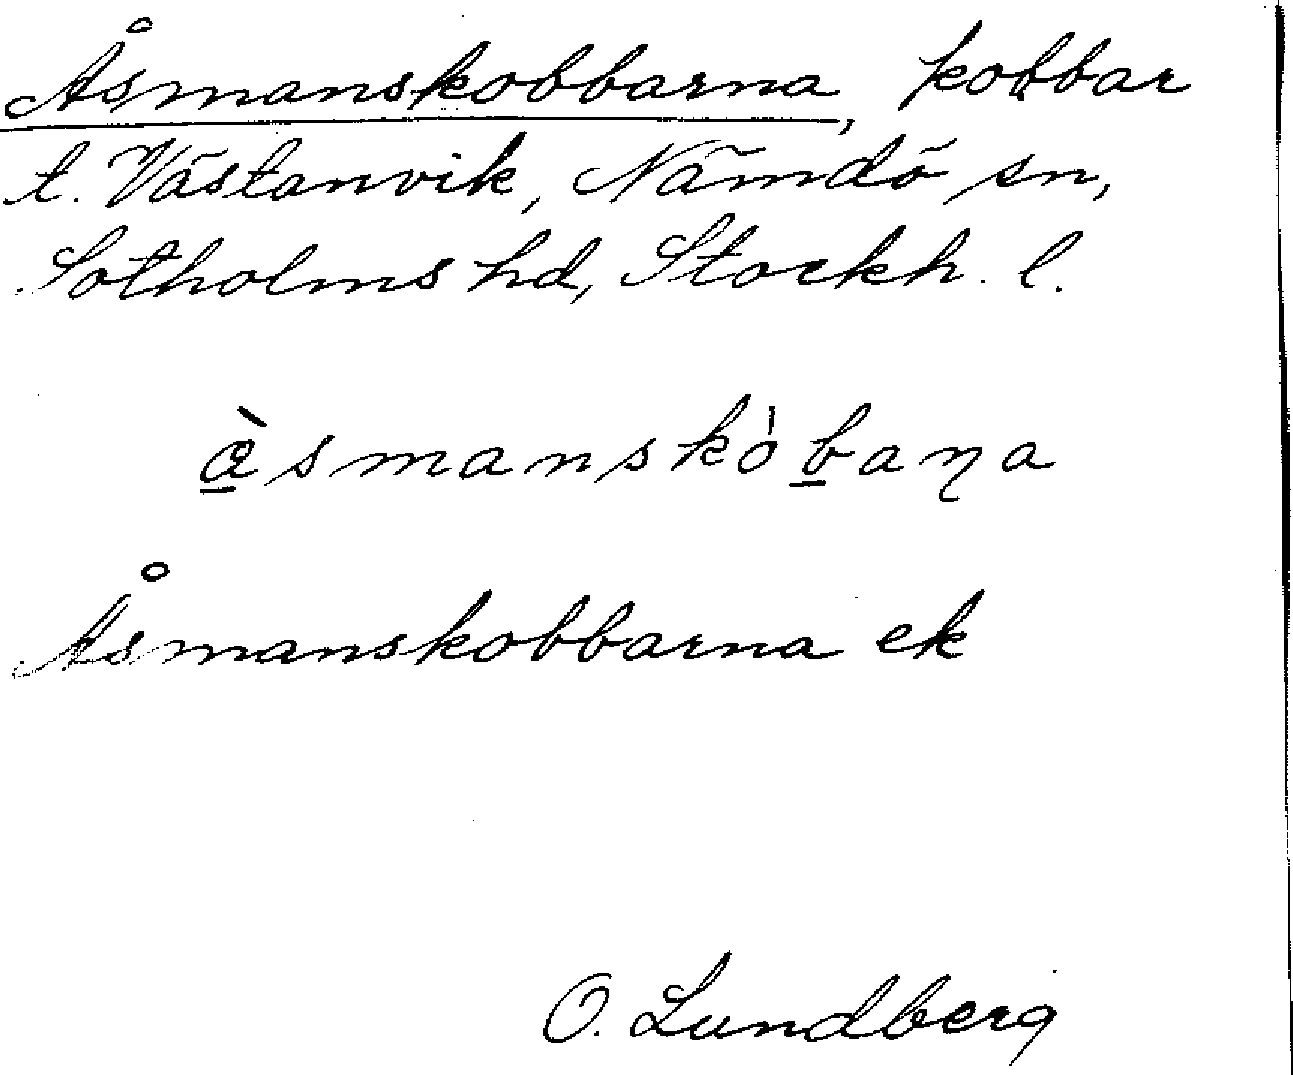 Åsmanskobbarna, kobbar
t. Västanvik, Nämdö sn,
Sotholms hd, Stockh. l.
à̲smanskȯ̀b̲aɳa
Åsmanskobbarna ek
O. Lundberg